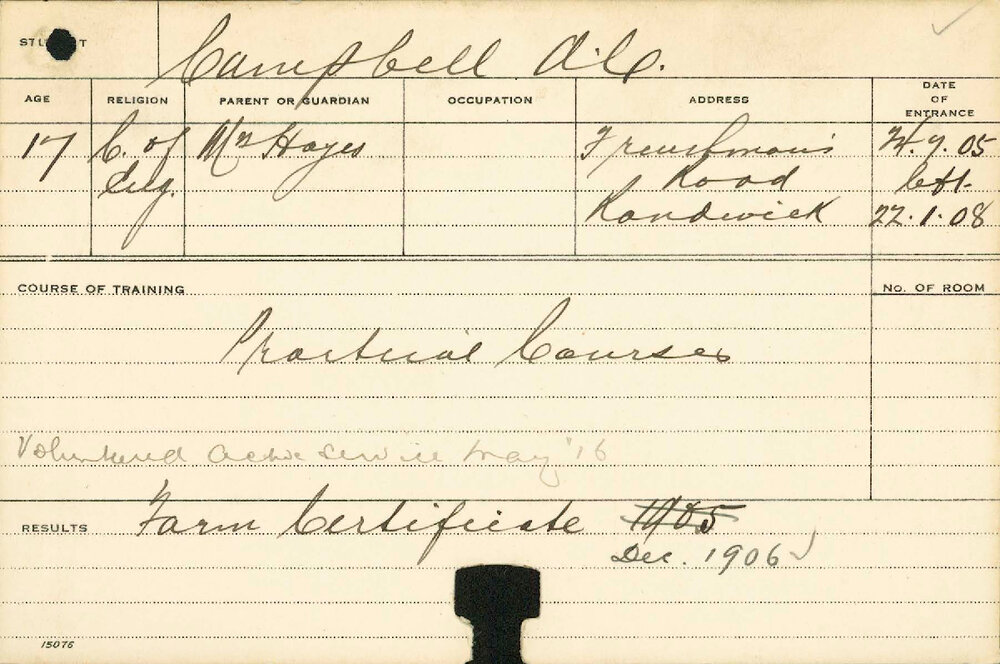 STUDENT Campbell A.C.
AGE RELIGION PARENT OR GUARDIAN OCCUPATION ADDRESS DATE OF ENTRANCE
17 C. of Mr Hayes Frenchman's 24.7.05
Eng. Road left
Randwick 22.1.08
COURSE OF TRAINING No. OF ROOM
Practical Courses
Volunteered active service May '16
RESULTS Farm Certificate 1905
Dec. 1906
15076